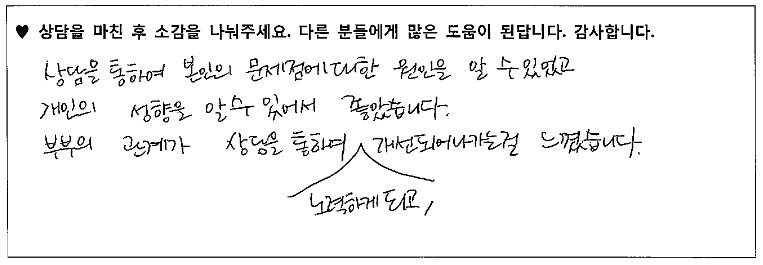 ♥ 상담을 마친 후 소감을 나눠주세요. 다른 분들에게 많은 도움이 된답니다. 감사합니다.
상담을 통하여 본인의 문제점에대한 원인을 알 수있었고
개인의 성향을 알수 있어서 좋았습니다.
부부의 관계가 상담을 통하여 개선되어나가는걸 느꼈습니다.
노력하게 되고,